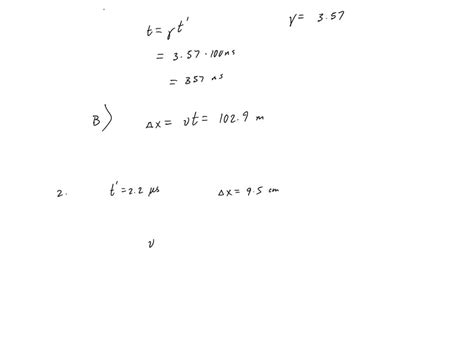 t = γt' γ = 3.57
= 3.57 · 100 ns
= 357 ns
B) Δx = vt = 102.9 m
2. t' = 2.2 μs Δx = 9.5 cm
v